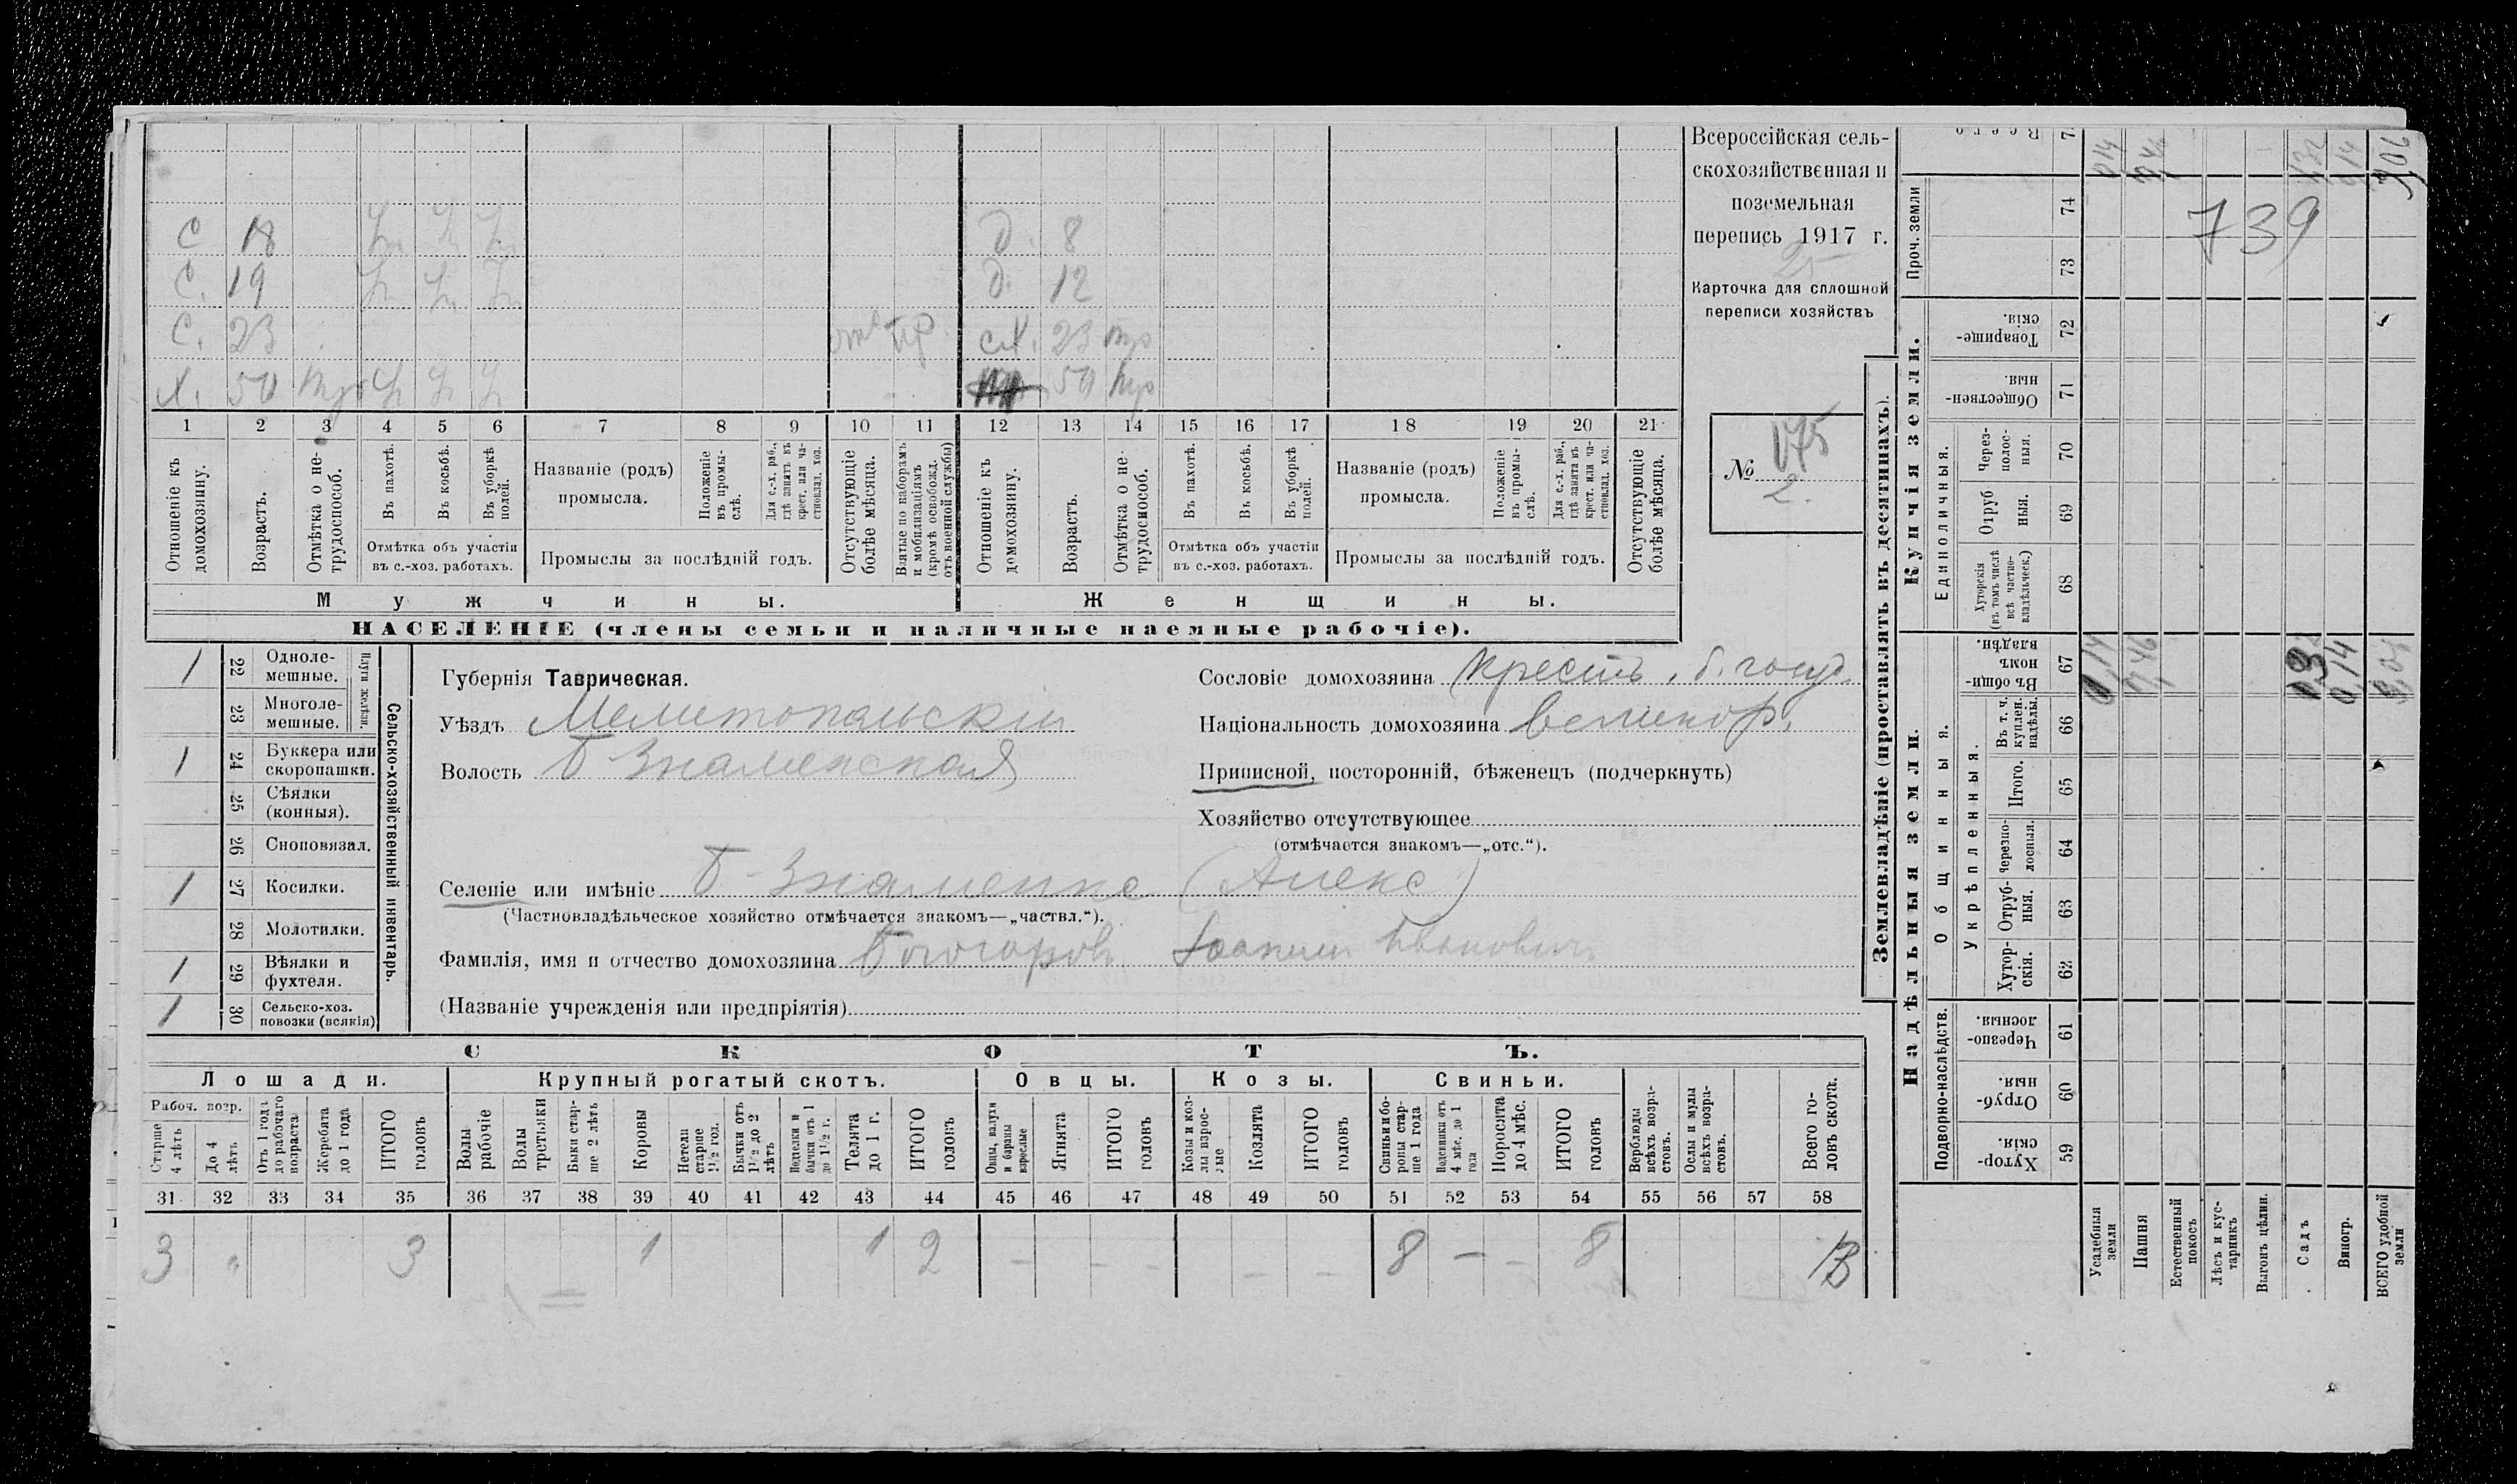 Всероссійская сель-
скохозяйственная и
поземельная
перепись 1917 г.
25
Карточка для сплошной
переписи хозяйствъ
№ 175
2.
С 18 д. 8
С. 19 д. 12
С. 23 сх. 23 тр
Х. 50 50 тр
1 2 3 4 5 6 7 8 9 10 11 12 13 14 15 16 17 18 19 20 21
Отношеніе къ домохозяину.
Возрастъ.
Отмѣтка о не-трудоспособ.
Въ пахотѣ.
Въ косьбѣ.
Въ уборкѣ полей.
Отмѣтка объ участіи
въ с.-хоз. работахъ.
Названіе (родъ)
промысла.
Положеніе въ промы-слѣ.
Для с.-х. раб., гдѣ занятъ въ крест. или ча-стновлад. хоз.
Промыслы за послѣдній годъ.
Отсутствующіе болѣе мѣсяца.
Взятые по наборамъ и мобилизаціямъ (кромѣ освобожд. отъ военной службы)
Отношеніе къ домохозяину.
Возрастъ.
Отмѣтка о не-трудоспособ.
Въ пахотѣ.
Въ косьбѣ.
Въ уборкѣ полей.
Отмѣтка объ участіи
въ с.-хоз. работахъ.
Названіе (родъ)
промысла.
Положеніе въ промы-слѣ.
Для с.-х. раб., гдѣ занята въ крест. или ча-стновлад. хоз.
Промыслы за послѣдній годъ.
Отсутствующіе болѣе мѣсяца.
Мужчины. Женщины.
НАСЕЛЕНІЕ (члены семьи и наличные наемные рабочіе).
Сельско-хозяйственный инвентарь.
Плуги желѣзн.
1 22 Одноле-мешные.
23 Многоле-мешные.
1 24 Буккера или скоропашки.
25 Сѣялки (конныя).
26 Сноповязал.
1 27 Косилки.
28 Молотилки.
1 29 Вѣялки и фухтеля.
1 30 Сельско-хоз. повозки (всякія)
Губернія Таврическая.
Уѣздъ Мелитопольскій
Волость Б Знаменская
Селеніе или имѣніе Б-Знаменка (Алекс)
(Частновладѣльческое хозяйство отмѣчается знакомъ—„частвл.“).
Фамилія, имя и отчество домохозяина Иванович
(Названіе учрежденія или предпріятія)
Сословіе домохозяина крестъ. б. госуд.
Національность домохозяина великор.
Приписной, посторонній, бѣженецъ (подчеркнуть)
Хозяйство отсутствующее
(отмѣчается знакомъ—„отс.“).
СКОТЪ.
Лошади. Крупный рогатый скотъ. Овцы. Козы. Свиньи.
Рабоч. возр.
Старше 4 лѣтъ
До 4 лѣтъ
Отъ 1 года до рабочаго возраста
Жеребята до 1 года
ИТОГО головъ
Волы рабочіе
Волы третьяки
Быки стар-ше 2 лѣтъ
Коровы
Нетели старше 1½ год.
Бычки отъ 1½ до 2 лѣтъ
Подтелки и бычки отъ 1 до 1½ г.
Телята до 1 г.
ИТОГО головъ
Овцы, валухи и бараны взрослые
Ягнята
ИТОГО головъ
Козы и коз-лы взрос-лые
Козлята
ИТОГО головъ
Свиньи и бо-ровы стар-ше 1 года
Подсвинки отъ 4 мѣс. до 1 года
Поросята до 4 мѣс.
ИТОГО головъ
Верблюды всѣхъ возра-стовъ.
Ослы и мулы всѣхъ возра-стовъ.
Всего го-ловъ скота.
31 32 33 34 35 36 37 38 39 40 41 42 43 44 45 46 47 48 49 50 51 52 53 54 55 56 57 58
3 „ 3 1 1 2 – – – – – 8 – – 8 13
Землевладѣніе (проставлять въ десятинахъ).
Надѣльныя земли. Купчія земли. Проч. земли
Подворно-наслѣдств. Общинныя. Укрѣпленныя. Единоличныя.
Хутор-скія. 59
Отруб-ныя 60
Черезпо-лосныя. 61
Хутор-скія. 62
Отруб-ныя. 63
Черезпо-лосныя. 64
Итого. 65
Въ т. ч. куплен. надѣлы. 66
Въ общи-номъ владѣн. 67
Хуторскія (въ томъ числѣ всѣ частно-владѣльческ.) 68
Отруб ныя. 69
Через-полос-ныя. 70
Обществен-ныя 71
Товарище-скія. 72
73
74
Всего
739
Усадебныя земли
Пашня
Естественный покосъ
Лѣсъ и кус-тарникъ
Выгонъ цѣлин.
Садъ
Виногр. 0,14
ВСЕГО удобной земли